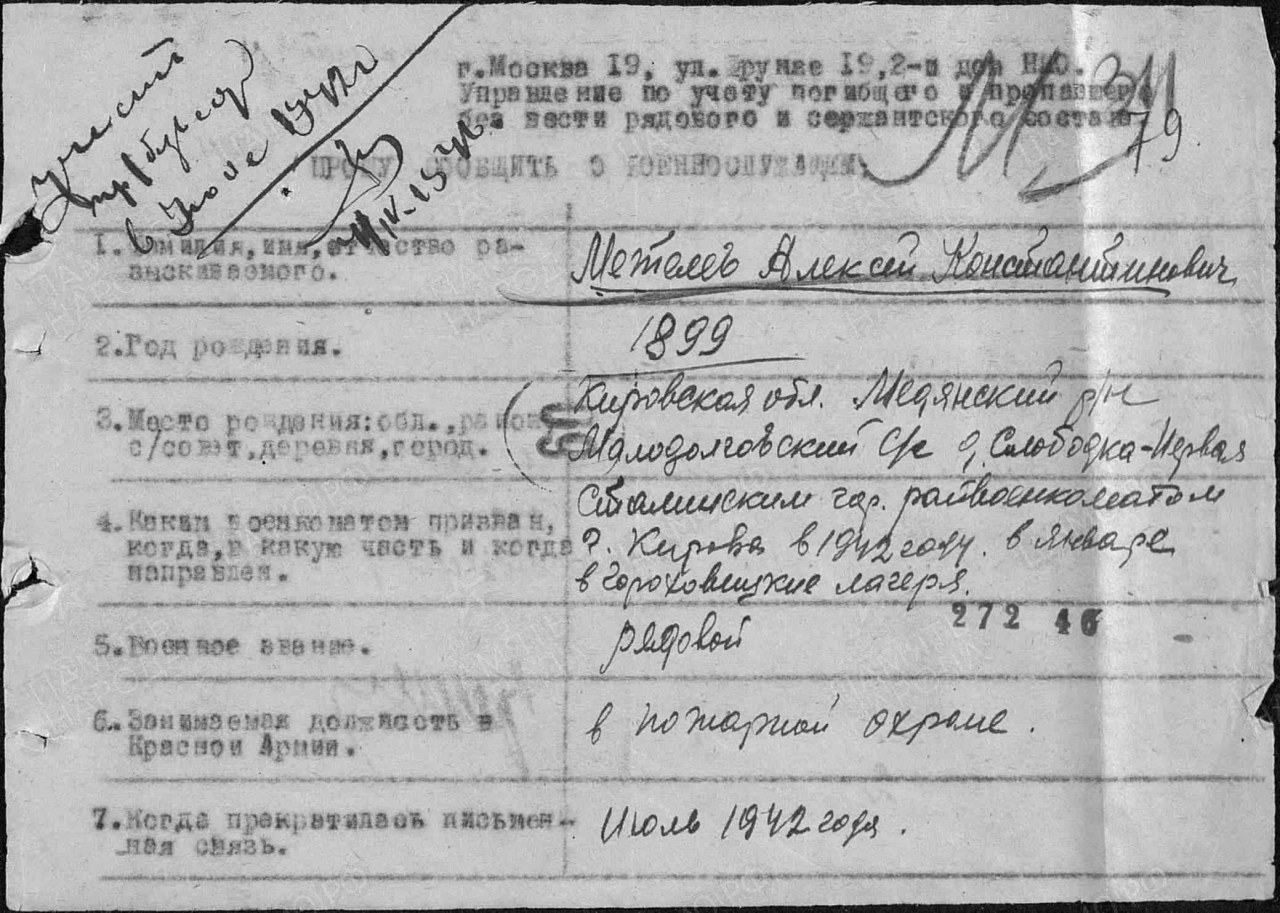 Учесть
пр/без
в
г. Москва 19, ул. Фрунзе 19, 2-й дом НКО.
Управление по учету погибшего и пропавшего
без вести рядового и сержантского состава
79.
ПРОШУ СООБЩИТЬ О ВОЕННОСЛУЖАЩЕМ:
1. Фамилия, имя, отчество ра-
зыскиваемого.
Метелев Алексей Константинович
2. Год рождения.
1899
3. Место рождения: обл., район,
с/совет, деревня, город.
Кировская обл. Медянский р/н
Малодолговский с/с д. Слободка-Первая
4. Каким военкоматом призван,
когда, в какую часть и когда
направлен.
Сталинским гор. райвоенкоматом
г. Кирова в 1942 году. в январе
в Гороховецкие лагеря.
272 46
5. Военное звание.
рядовой
6. Занимаемая должность в
Красной Армии.
в пожарной охране.
7. Когда прекратилась письмен-
ная связь.
Июль 1942 года.